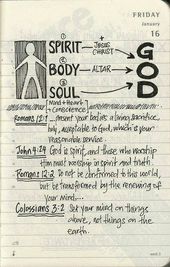 FRIDAY
January
16
① SPIRIT + JESUS CHRIST G
② BODY ALTAR O
③ SOUL D
Mind + Heart +
Conscience
Romans 12:1 ... present your bodies a living sacrifice,
holy, acceptable to God, which is your
reasonable service.
John 4:24 God is spirit, and those who worship
Him must worship in spirit and truth.
Romans 12:2 To not be conformed to this world,
but be transformed by the renewing of
your mind....
Colossians 3:2 Set your mind on things
above, not things on
the earth.